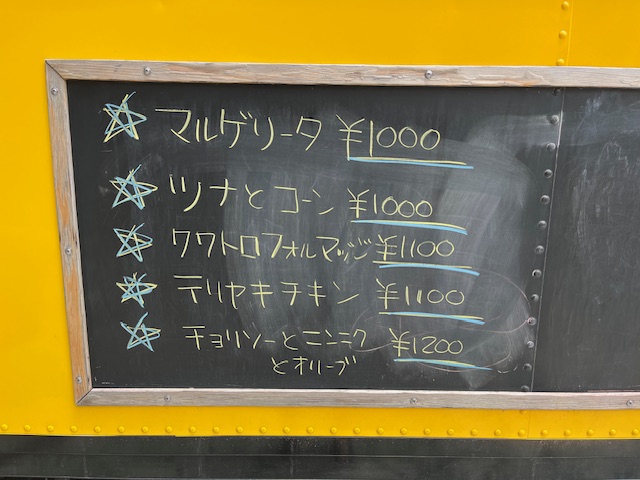 マルゲリータ ¥1000
ツナとコーン ¥1000
クワトロフォルマッジ ¥1100
テリヤキチキン ¥1100
チョリソーとニンニク ¥1200
とオリーブ